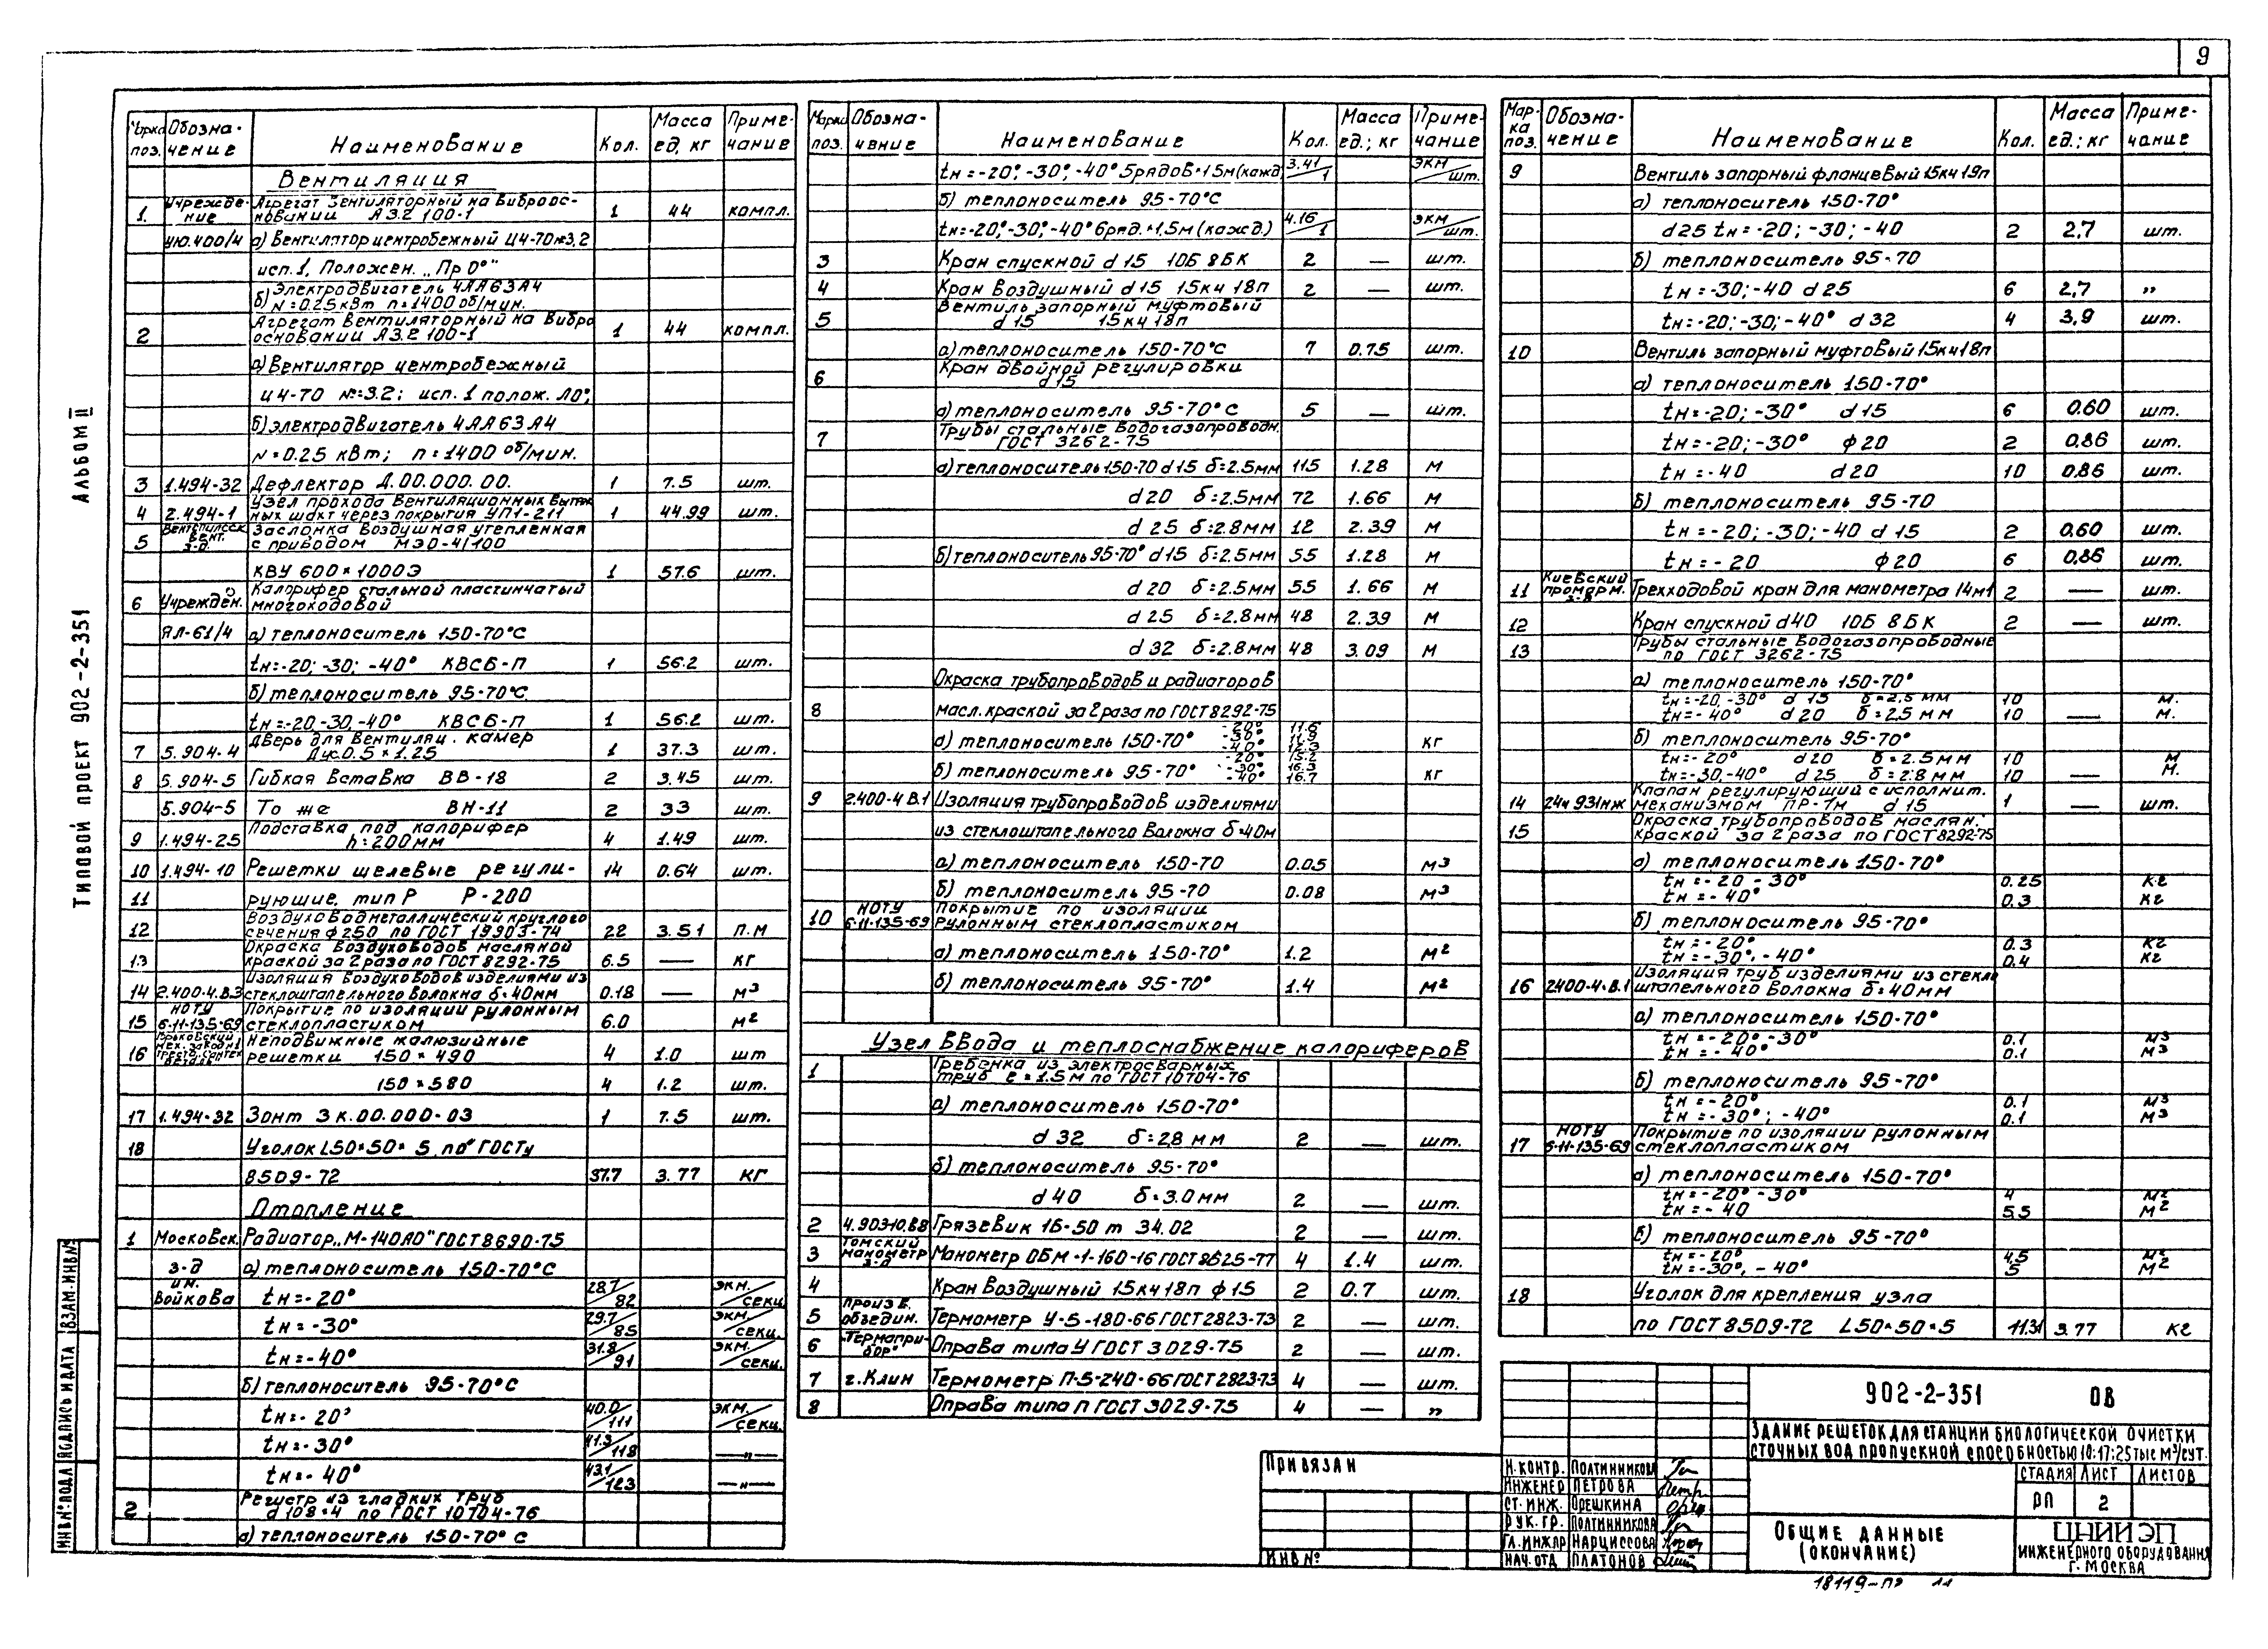 9
АЛЬБОМ II
ТИПОВОЙ ПРОЕКТ 902-2-351
Марка поз. Обозначение Наименование Кол. Масса ед, кг Примечание
Вентиляция
1 Учреждение Агрегат вентиляторный на виброос-
новании А3.2 100-1 1 44 компл.
УЮ.400/4 а) Вентилятор центробежный Ц4-70 №3,2
исп. 1, Положен. „Пр 0°"
б) Электродвигатель 4АА63А4
N=0.25 кВт n=1400 об/мин.
2 Агрегат вентиляторный на вибро
основании А3.2 100-1 1 44 компл.
а) Вентилятор центробежный
Ц4-70 №=3.2; исп. 1 полож. Л0°,
б) электродвигатель 4АА63А4
N=0.25 кВт; n=1400 об/мин.
3 1.494-32 Дефлектор Д.00.000.00. 1 7.5 шт.
Узел прохода вентиляционных вытяж
4 2.494-1 ных шахт через покрытия УП1-211 1 44.99 шт.
5 Вент. з-д. Заслонка воздушная утепленная
с приводом МЭО-4/100
КВУ 600×1000Э 1 57.6 шт.
6 Учрежден. Калорифер стальной пластинчатый
многоходовой
ЯЛ-61/4 а) теплоноситель 150-70°С
tн=-20; -30; -40° КВСБ-П 1 56.2 шт.
б) теплоноситель 95-70°С
tн=-20,-30,-40° КВСБ-П 1 56.2 шт.
7 5.904-4 Дверь для вентиляц. камер
Дус 0.5×1.25 1 37.3 шт.
8 5.904-5 Гибкая вставка ВВ-18 2 3.45 шт.
5.904-5 То же ВН-11 2 33 шт.
9 1.494-25 Подставка под калорифер
h=200мм 4 1.49 шт.
10 1.494-10 Решетки щелевые регули- 14 0.64 шт.
11 рующие, тип Р Р-200
12 Воздуховод металлический круглого
сечения ф250 по ГОСТ 19903-74 22 3.51 п.м
13 Окраска воздуховодов масляной
краской за 2 раза по ГОСТ 8292-75 6.5 — кг
Изоляция воздуховодов изделиями из
14 2.400-4.В.3 стеклоштапельного волокна δ=40мм 0.18 — м3
15 НОТУ 6-11-135-69 Покрытие по изоляции рулонным
стеклопластиком 6.0 м2
16 Неподвижные жалюзийные
решетки 150×490 4 1.0 шт
150×580 4 1.2 шт.
17 1.494-32 Зонт ЗК.00.000-03 1 7.5 шт.
18 Уголок L50×50×5 по ГОСТу
8509-72 37.7 3.77 кг
Отопление
1 Московск. Радиатор „М-140АО" ГОСТ 8690-75
з-д а) теплоноситель 150-70°С
им. Войкова tн=-20° 28.7/82 экм./секц.
tн=-30° 29.7/85 экм./секц.
tн=-40° 31.8/91 экм./секц.
б) теплоноситель 95-70°С
tн=-20° 40.0/111 экм./секц.
tн=-30° 41.3/118 —„—
tн=-40° 43.1/123 —„—
2 Регистр из гладких труб
d108×4 по ГОСТ 10704-76
а) теплоноситель 150-70°С
Марка поз. Обозначение Наименование Кол. Масса ед.; кг Примечание
tн=-20°, -30°, -40° 5рядов×1.5м (кажд 3.41/1 экм/шт.
б) теплоноситель 95-70°С
tн=-20°,-30°,-40° 6ряд.×1.5м (кажд.) 4.16/1 экм/шт.
3 Кран спускной d15 10Б 8БК 2 — шт.
4 Кран воздушный d15 15кч 18п 2 — шт.
5 Вентиль запорный муфтовый
d15 15кч 18п
а) теплоноситель 150-70°С 7 0.75 шт.
6 Кран двойной регулировки
d15
а) теплоноситель 95-70°С 5 — шт.
7 Трубы стальные водогазопроводн.
ГОСТ 3262-75
а) теплоноситель 150-70 d15 δ=2.5мм 115 1.28 м
d20 δ=2.5мм 72 1.66 м
d25 δ=2.8мм 12 2.39 м
б) теплоноситель 95-70° d15 δ=2.5мм 55 1.28 м
d20 δ=2.5мм 55 1.66 м
d25 δ=2.8мм 48 2.39 м
d32 δ=2.8мм 48 3.09 м
Окраска трубопроводов и радиаторов
8 масл. краской за 2 раза по ГОСТ 8292-75
а) теплоноситель 150-70° -20° -30° -40° 11.6 11.9 12.3 кг
б) теплоноситель 95-70° -20° -30° -40° 15.2 16.3 16.7 кг
9 2.400-4 В.1 Изоляция трубопроводов изделиями
из стеклоштапельного волокна δ=40м
а) теплоноситель 150-70 0.05 м3
б) теплоноситель 95-70 0.08 м3
10 НОТУ 6-11-135-69 Покрытие по изоляции
рулонным стеклопластиком
а) теплоноситель 150-70° 1.2 м2
б) теплоноситель 95-70° 1.4 м2
Узел ввода и теплоснабжение калориферов
1 Гребенка из электросварных
труб ℓ=1.5м по ГОСТ 10704-76
а) теплоноситель 150-70°
d32 δ=2.8 мм 2 — шт.
б) теплоноситель 95-70°
d40 δ=3.0мм 2 — шт.
2 4.903-10.В8 Грязевик 16-50 т 34.02 2 — шт.
3 Томский манометр з-д Манометр ОБМ-1-160-16 ГОСТ 8625-77 4 1.4 шт.
4 Кран воздушный 15кч18п ф15 2 0.7 шт.
5 Произв. объедин. Термометр У-5-180-66 ГОСТ 2823-73 2 — шт.
6 „Термапри-бор" Оправа типа У ГОСТ 3029-75 2 — шт.
7 г. Клин Термометр П-5-240-66 ГОСТ 2823-73 4 — шт.
8 Оправа типа П ГОСТ 3029-75 4 — „
Марка поз. Обозначение Наименование Кол. Масса ед.; кг Примечание
9 Вентиль запорный фланцевый 15кч19п
а) теплоноситель 150-70°
d25 tн=-20; -30; -40 2 2,7 шт.
б) теплоноситель 95-70
tн=-30;-40 d25 6 2,7 „
tн=-20;-30;-40° d32 4 3,9 шт.
10 Вентиль запорный муфтовый 15кч18п
а) теплоноситель 150-70°
tн=-20; -30° d15 6 0.60 шт.
tн=-20; -30° ф20 2 0,86 шт.
tн=-40 d20 10 0,86 шт.
б) теплоноситель 95-70
tн=-20; -30; -40 d15 2 0,60 шт.
tн=-20 ф20 6 0,86 шт.
11 Киевский Трехходовой кран для манометра 14м1 2 — шт.
12 Кран спускной d40 10Б 8БК 2 — шт.
13 Трубы стальные водогазопроводные
по ГОСТ 3262-75
а) теплоноситель 150-70°
tн=-20,-30° d15 δ=2.5 мм 10 м.
tн=-40° d20 δ=2.5 мм 10 — м.
б) теплоноситель 95-70°
tн=-20° d20 δ=2.5мм 10 м
tн=-30,-40° d25 δ=2.8 мм 10 — м.
14 24ч 931нж Клапан регулирующий с исполнит.
механизмом ПР-1м d15 1 — шт.
15 Окраска трубопроводов маслян.
краской за 2 раза по ГОСТ 8292-75
а) теплоноситель 150-70°
tн=-20 -30° 0.25 кг
tн=-40° 0.3 кг
б) теплоноситель 95-70°
tн=-20° 0.3 кг
tн=-30°,-40° 0.4 кг
16 2400-4.В.1 Изоляция труб изделиями из стекло
штапельного волокна δ=40мм
а) теплоноситель 150-70°
tн=-20°-30° 0.1 м3
tн=-40° 0.1 м3
б) теплоноситель 95-70°
tн=-20° 0.1 м3
tн=-30°; -40° 0.1 м3
17 НОТУ 6-11-135-69 Покрытие по изоляции рулонным
стеклопластиком
а) теплоноситель 150-70°
tн=-20°-30° 4 м2
tн=-40 5.5 м2
б) теплоноситель 95-70°
tн=-20° 4,5 м2
tн=-30°,-40° 5 м2
18 Уголок для крепления узла
по ГОСТ 8509-72 L50×50×5 11.31 3.77 кг
ПРИВЯЗАН
ИНВ №
Н.КОНТР. ПОЛТИННИКОВА
ИНЖЕНЕР ПЕТРОВА
СТ. ИНЖ. ОРЕШКИНА
РУК. ГР. ПОЛТИННИКОВА
ГЛ.ИНЖ.ПР НАРЦИССОВА
НАЧ. ОТД ПЛАТОНОВ
902-2-351 ОВ
ЗДАНИЕ РЕШЕТОК ДЛЯ СТАНЦИИ БИОЛОГИЧЕСКОЙ ОЧИСТКИ
СТОЧНЫХ ВОД ПРОПУСКНОЙ СПОСОБНОСТЬЮ 10;17;25 ТЫС М3/СУТ.
СТАДИЯ ЛИСТ ЛИСТОВ
РП 2
ОБЩИЕ ДАННЫЕ
(ОКОНЧАНИЕ)
ЦНИИЭП
ИНЖЕНЕРНОГО ОБОРУДОВАНИЯ
Г. МОСКВА
ИНВ№ ПОДЛ ПОДПИСЬ И ДАТА ВЗАМ. ИНВ№
18119-02 11